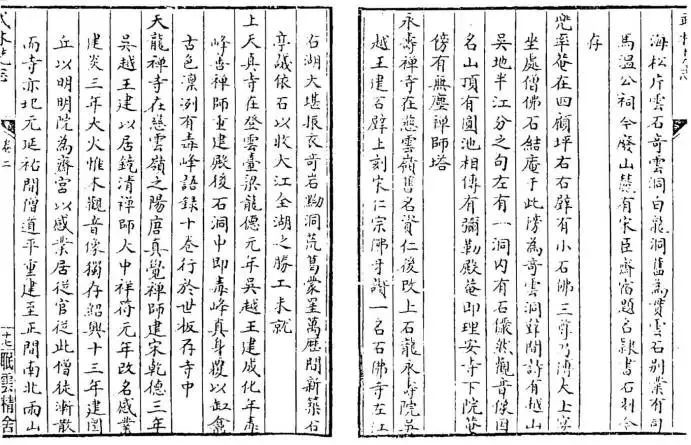 海松片雲石奇雲洞白龍洞舊為貫雲石別業有司
馬溫公祠今廢山麓有宋臣齋宿題名隸書石刻今
存
兜率庵在四顧坪右右辟有小石佛三尊乃傅大士宴
坐處僧佛石結庵于此傍為奇雲洞薛閒詩有越山
吳地半江分之句左有一洞內有石儼然觀音像因
名山頂有圓池相傳有彌勒殿菴即理安寺下院菴
傍有無塵禪師塔
永壽禪寺在慈雲嶺舊名資仁後改上石龍永壽院吳
越王建石壁上刻宋仁宗佛牙讚一名石佛寺在江
石湖大堪振衣奇岩黝洞荒葛蒙星萬曆間新築石
亭議依石以收大江全湖之勝工未就
上天真寺在登雲臺梁龍德元年吳越王建成化年毒
峰善禪師重建殿後石洞中即毒峰真身覆以缸龕
古色凜冽有毒峰語錄十卷行於世板存寺中
天龍禪寺在慈雲嶺之陽唐真覺禪師建宋乾德三年
吳越王建以居鏡清禪師大中祥符元年改名感業
建炎三年大火惟木觀音像獨存紹興十三年建圜
丘以明明院為齋宮以感業居從官從此僧徒漸散
而寺亦圮元延祐間僧道平重建至正間南北兩山
卷二
十七
眠雲精舍